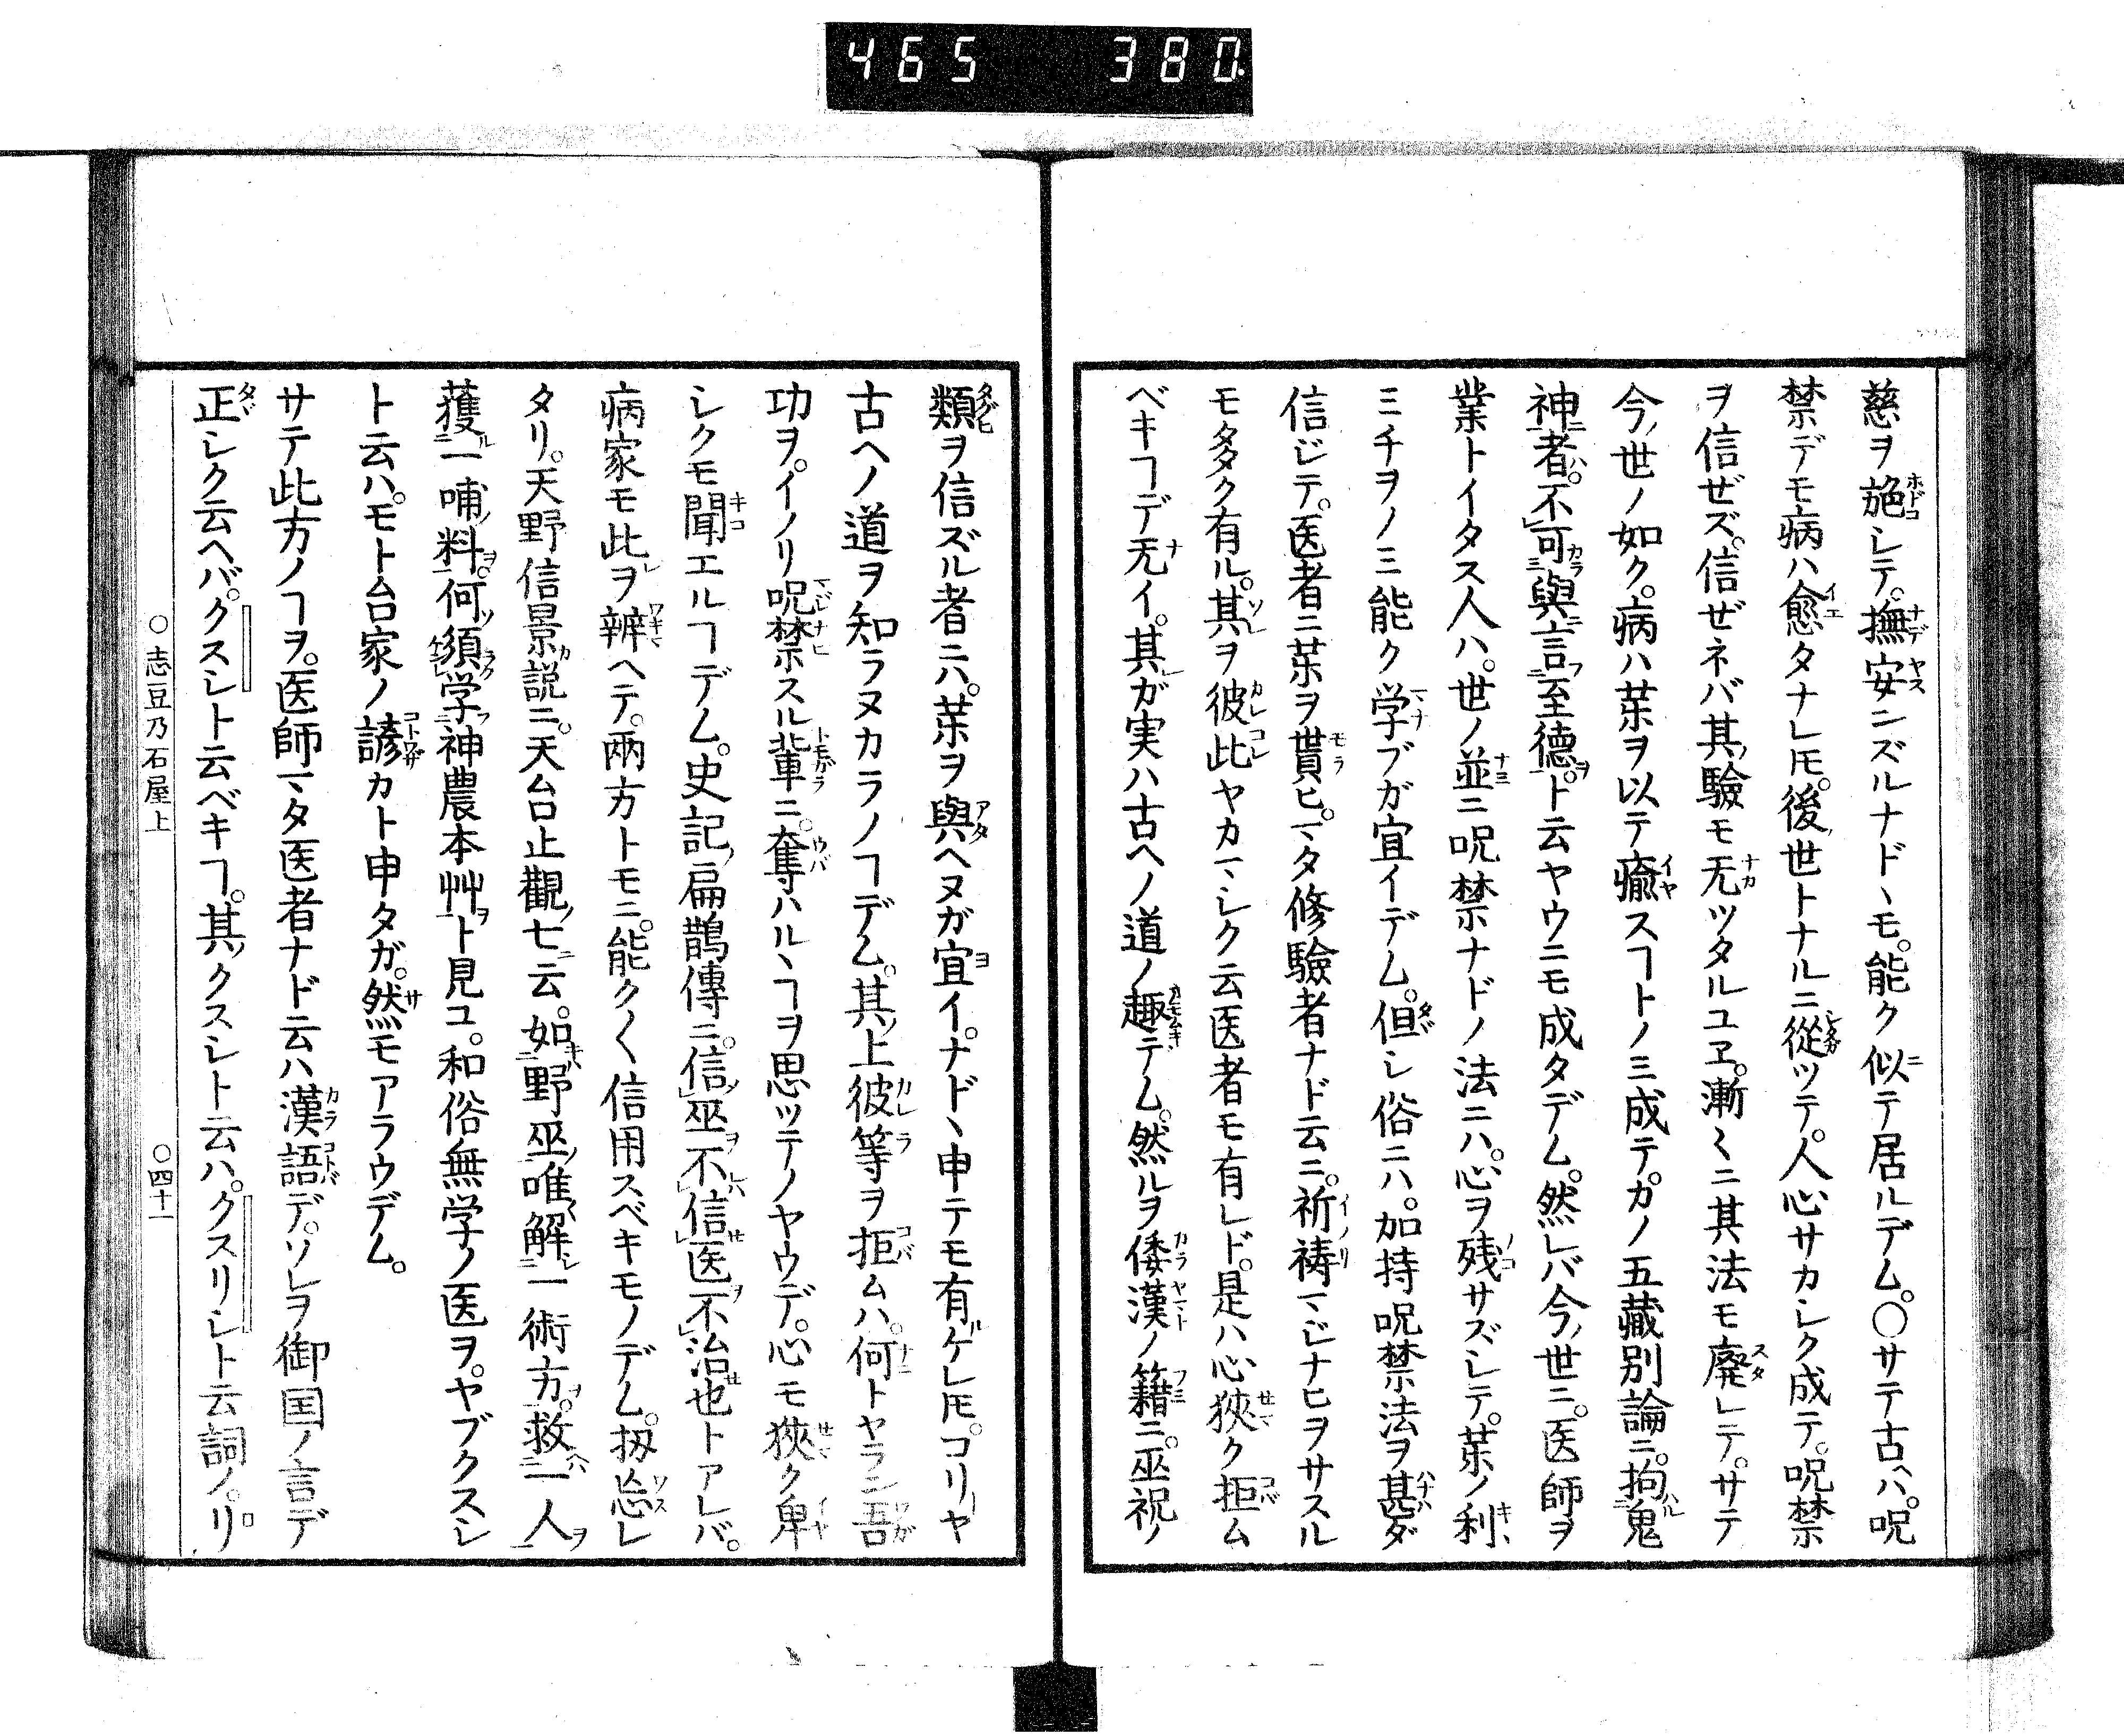 465 380
慈ヲ施シテ。撫安ンズルナドヽモ。能ク似テ居ルデム。〇サテ古ヘハ。呪
禁デモ病ハ愈タナレ𪜈。後ノ世トナルニ從ツテ。人心サカシク成テ。呪禁
ヲ信ゼズ。信ゼネバ其ノ驗モ无ツタルユヱ。漸〱ニ其法モ廢レテ。サテ
今ノ世ノ如ク。病ハ藥ヲ以テ癒スヿトノミ成テ。カノ五藏別論ニ。拘鬼
神者。不可與言至德ト云ヤウニモ成タデム。然レバ今ノ世ニ。医師ヲ
業トイタス人ハ。世ノ並ニ呪禁ナドノ法ニハ。心ヲ殘サズシテ。藥ノ利
ミチヲノミ能ク学ブガ宜イデム。但シ俗ニハ。加持呪禁法ヲ甚ダ
信じテ。医者ニ藥ヲ貰ヒ。マタ修驗者ナド云ニ。祈禱マジナヒヲサスル
モ多ク有ル。其ヲ彼此ヤカマシク云医者モ有レド。是ハ心狹ク拒ム
ベキヿデ无イ。其レガ実ハ古ヘノ道ノ趣デム。然ルヲ倭漢ノ籍ニ。巫祝ノ
類ヲ信ズル者ニハ。藥ヲ與ヘヌガ宜イ。ナドヽ申テモ有ルケレ𪜈。コリヤ
古ヘノ道ヲ知ラヌカラノヿデム。其ノ上彼等ヲ拒ムハ。何トヤラン吾ガ
功ヲ。イノリ呪禁スル輩ニ。奪ハルヽヿヲ思ツテノヤウデ。心モ狹ク卑
シクモ聞エルヿデム。史記ノ扁鵲傳ニ。信巫不信医不治也トアレバ。
病家モ此レヲ辨ヘテ。兩方トモニ。能ク〱信用スベキモノデム。扨忘レ
タリ。天野信景カ説ニ。天台止觀ノ七ニ云。如野巫唯解一術方。救一人
獲一哺ノ料。何須学神農本艸ト見ユ。和俗無学ノ医ヲ。ヤブクスシ
ト云ハ。モト台家ノ諺カト申タガ。然モアラウデム。
サテ此方ノヿヲ。医師マタ医者ナド云ハ漢語デ。ソレヲ御国ノ言デ
正シク云ヘバ。クスシト云ベキヿ。其ノクスシト云ハ。クスリシト云詞ノ。リ
〇志豆乃石屋上 〇四十一